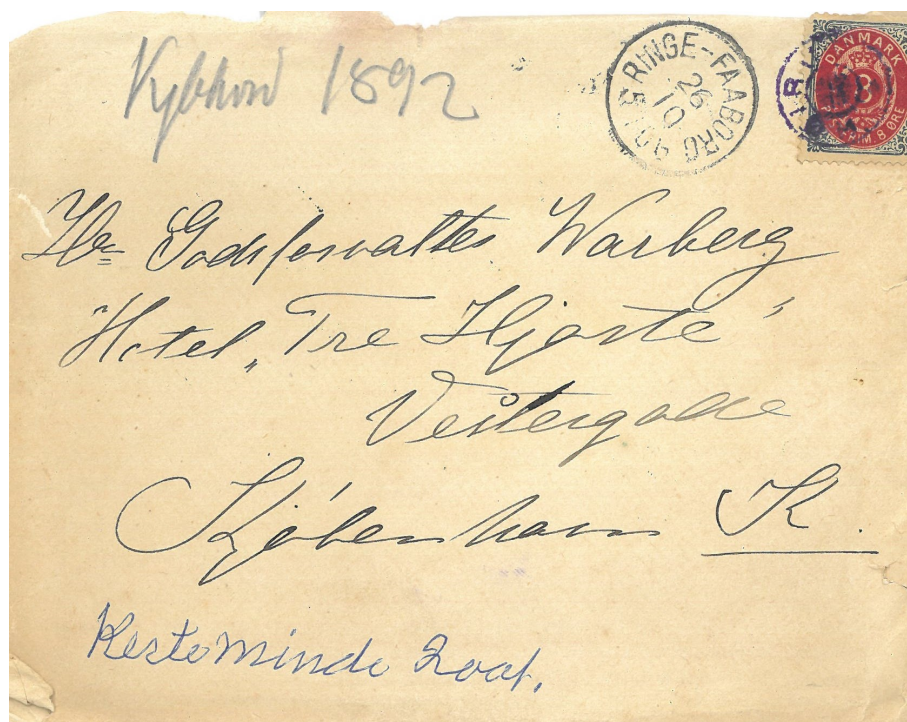 1892
RINGE-FAABORG
26
10
DANMARK
8 ØRE
Hr Godsforvalter Warberg
Hotel „Tre Hjorte"
Vestergade
Kjøbenhavn K.